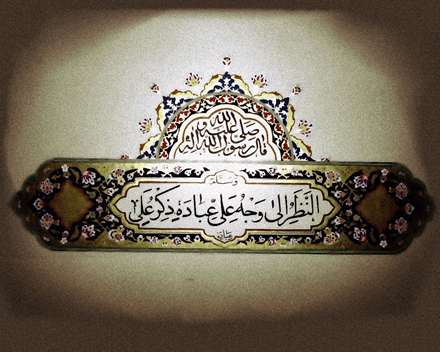 قال رسول الله صلى الله عليه و آله
وسلم
النَّظَرُ إِلى وَجْهِ عَلِيٍّ عِبادَةٌ ذِكْرُ عَلِيٍّ
عبادة